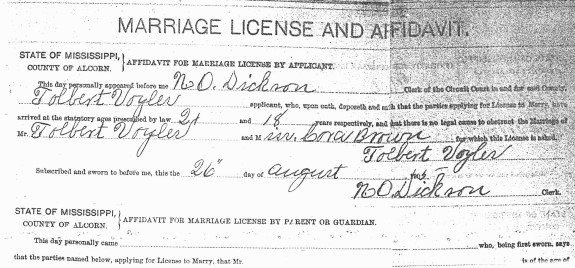 MARRIAGE LICENSE AND AFFIDAVIT.
STATE OF MISSISSIPPI,
COUNTY OF ALCORN.
AFFIDAVIT FOR MARRIAGE LICENSE BY APPLICANT.
This day personally appeared before me N O. Dickson Clerk of the Circuit Court in and for said County,
Tolbert Voyler applicant, who, upon oath, deposeth and saith that the parties applying for License to Marry, have
arrived at the statutory ages prescribed by law 21 and 18 years respectively, and that there is no legal cause to obstruct the Marriage of
Mr. Tolbert Voyler and Miss Cora Brown for which this License is asked.
Tolbert Voyler
Subscribed and sworn to before me, this the 26" day of August
N O. Dickson Clerk.
STATE OF MISSISSIPPI,
COUNTY OF ALCORN.
AFFIDAVIT FOR MARRIAGE LICENSE BY PARENT OR GUARDIAN.
This day personally came who, being first sworn, says
that the parties named below, applying for License to Marry, that Mr. is of the age of